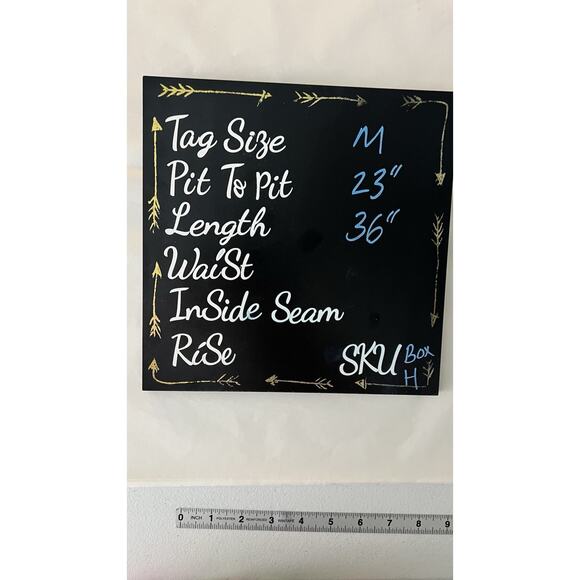 Tag Size M
Pit To Pit 23"
Length 36"
Waist
Inside Seam
Rise
SKU Box H
0 INCH 1 POLYESTER 2 REINFORCED 3 4 5 6 7 8 9